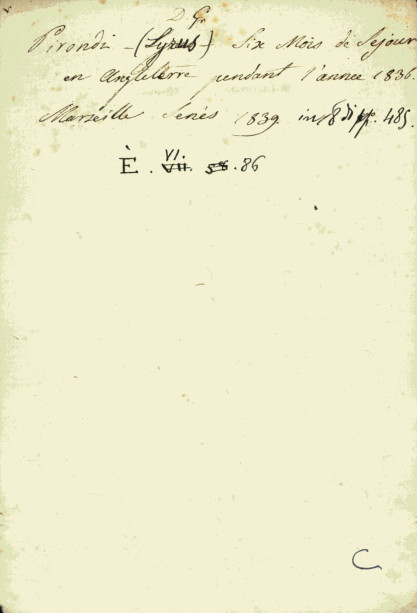 D G.
Pirondi - (Syrus) Six Mois de Sejour
en Angleterre pendant l'annee 1836.
Marseille Senés 1839. in 18 di pp. 485.
VI.
È. VII. 58. 86
C